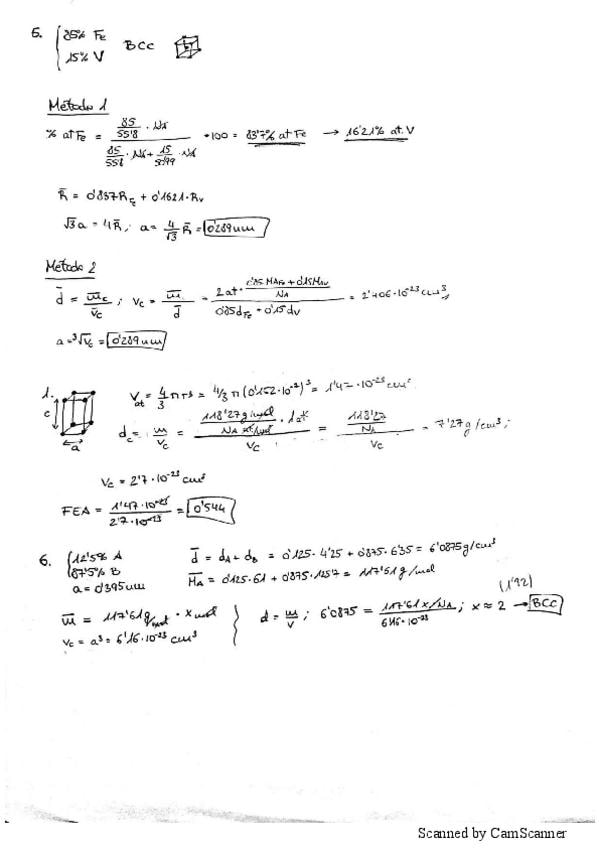 5. { 85% Fe
15% V BCC
Método 1
% at Fe = (85/55'8 · NA) / (85/55'8 · NA + 15/50'99 · NA) · 100 = 83'7% at Fe → 16'21% at. V
R̄ = 0'837 R_Fe + 0'1621 · R_V
√3 a = 4R̄; a = 4/√3 R̄ = 0'289 nm
Método 2
d̄ = m̄c/v̄c ; Vc = m̄/d̄ = (2 at · (0'85 MAFe + 0'15 MAV)/NA) / (0'85 dFe + 0'15 dV) = 2'406 · 10^-23 cm³
a = ³√Vc = 0'289 nm
1. c a
V at = 4/3 π r³ = 4/3 π (0'152 · 10^-7)³ = 1'47 · 10^-23 cm³
dc = m/vc = (118'27 g/mol / NA at/mol · 1 at) / Vc = (118'27/NA) / Vc = 7'27 g/cm³;
Vc = 2'7 · 10^-23 cm³
FEA = 1'47 · 10^-23 / 2'7 · 10^-23 = 0'544
6. { 12'5% A
87'5% B
a = 0'395 nm
d̄ = dA + dB = 0'125 · 4'25 + 0'875 · 6'35 = 6'0875 g/cm³
M̄A = 0'125 · 61 + 0'875 · 125'7 = 117'61 g/mol
m̄ = 117'61 g/mol · x mol
Vc = a³ = 6'16 · 10^-23 cm³
d = m/v ; 6'0875 = (117'61 x/NA) / 6'16 · 10^-23 ; x ≈ 2 (1'92) → BCC
Scanned by CamScanner